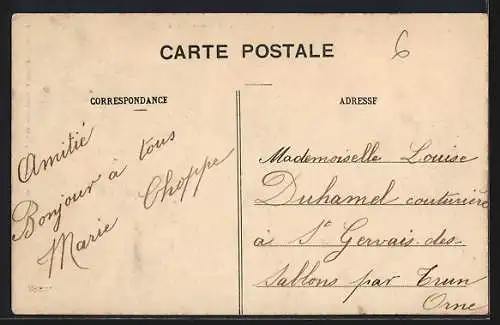 CARTE POSTALE
6
CORRESPONDANCE
Amitié
Bonjour à tous
Marie Choppe
ADRESSE
Mademoiselle Louise
Duhamel couturière
à St Gervais-des-
Sablons par Trun
Orne